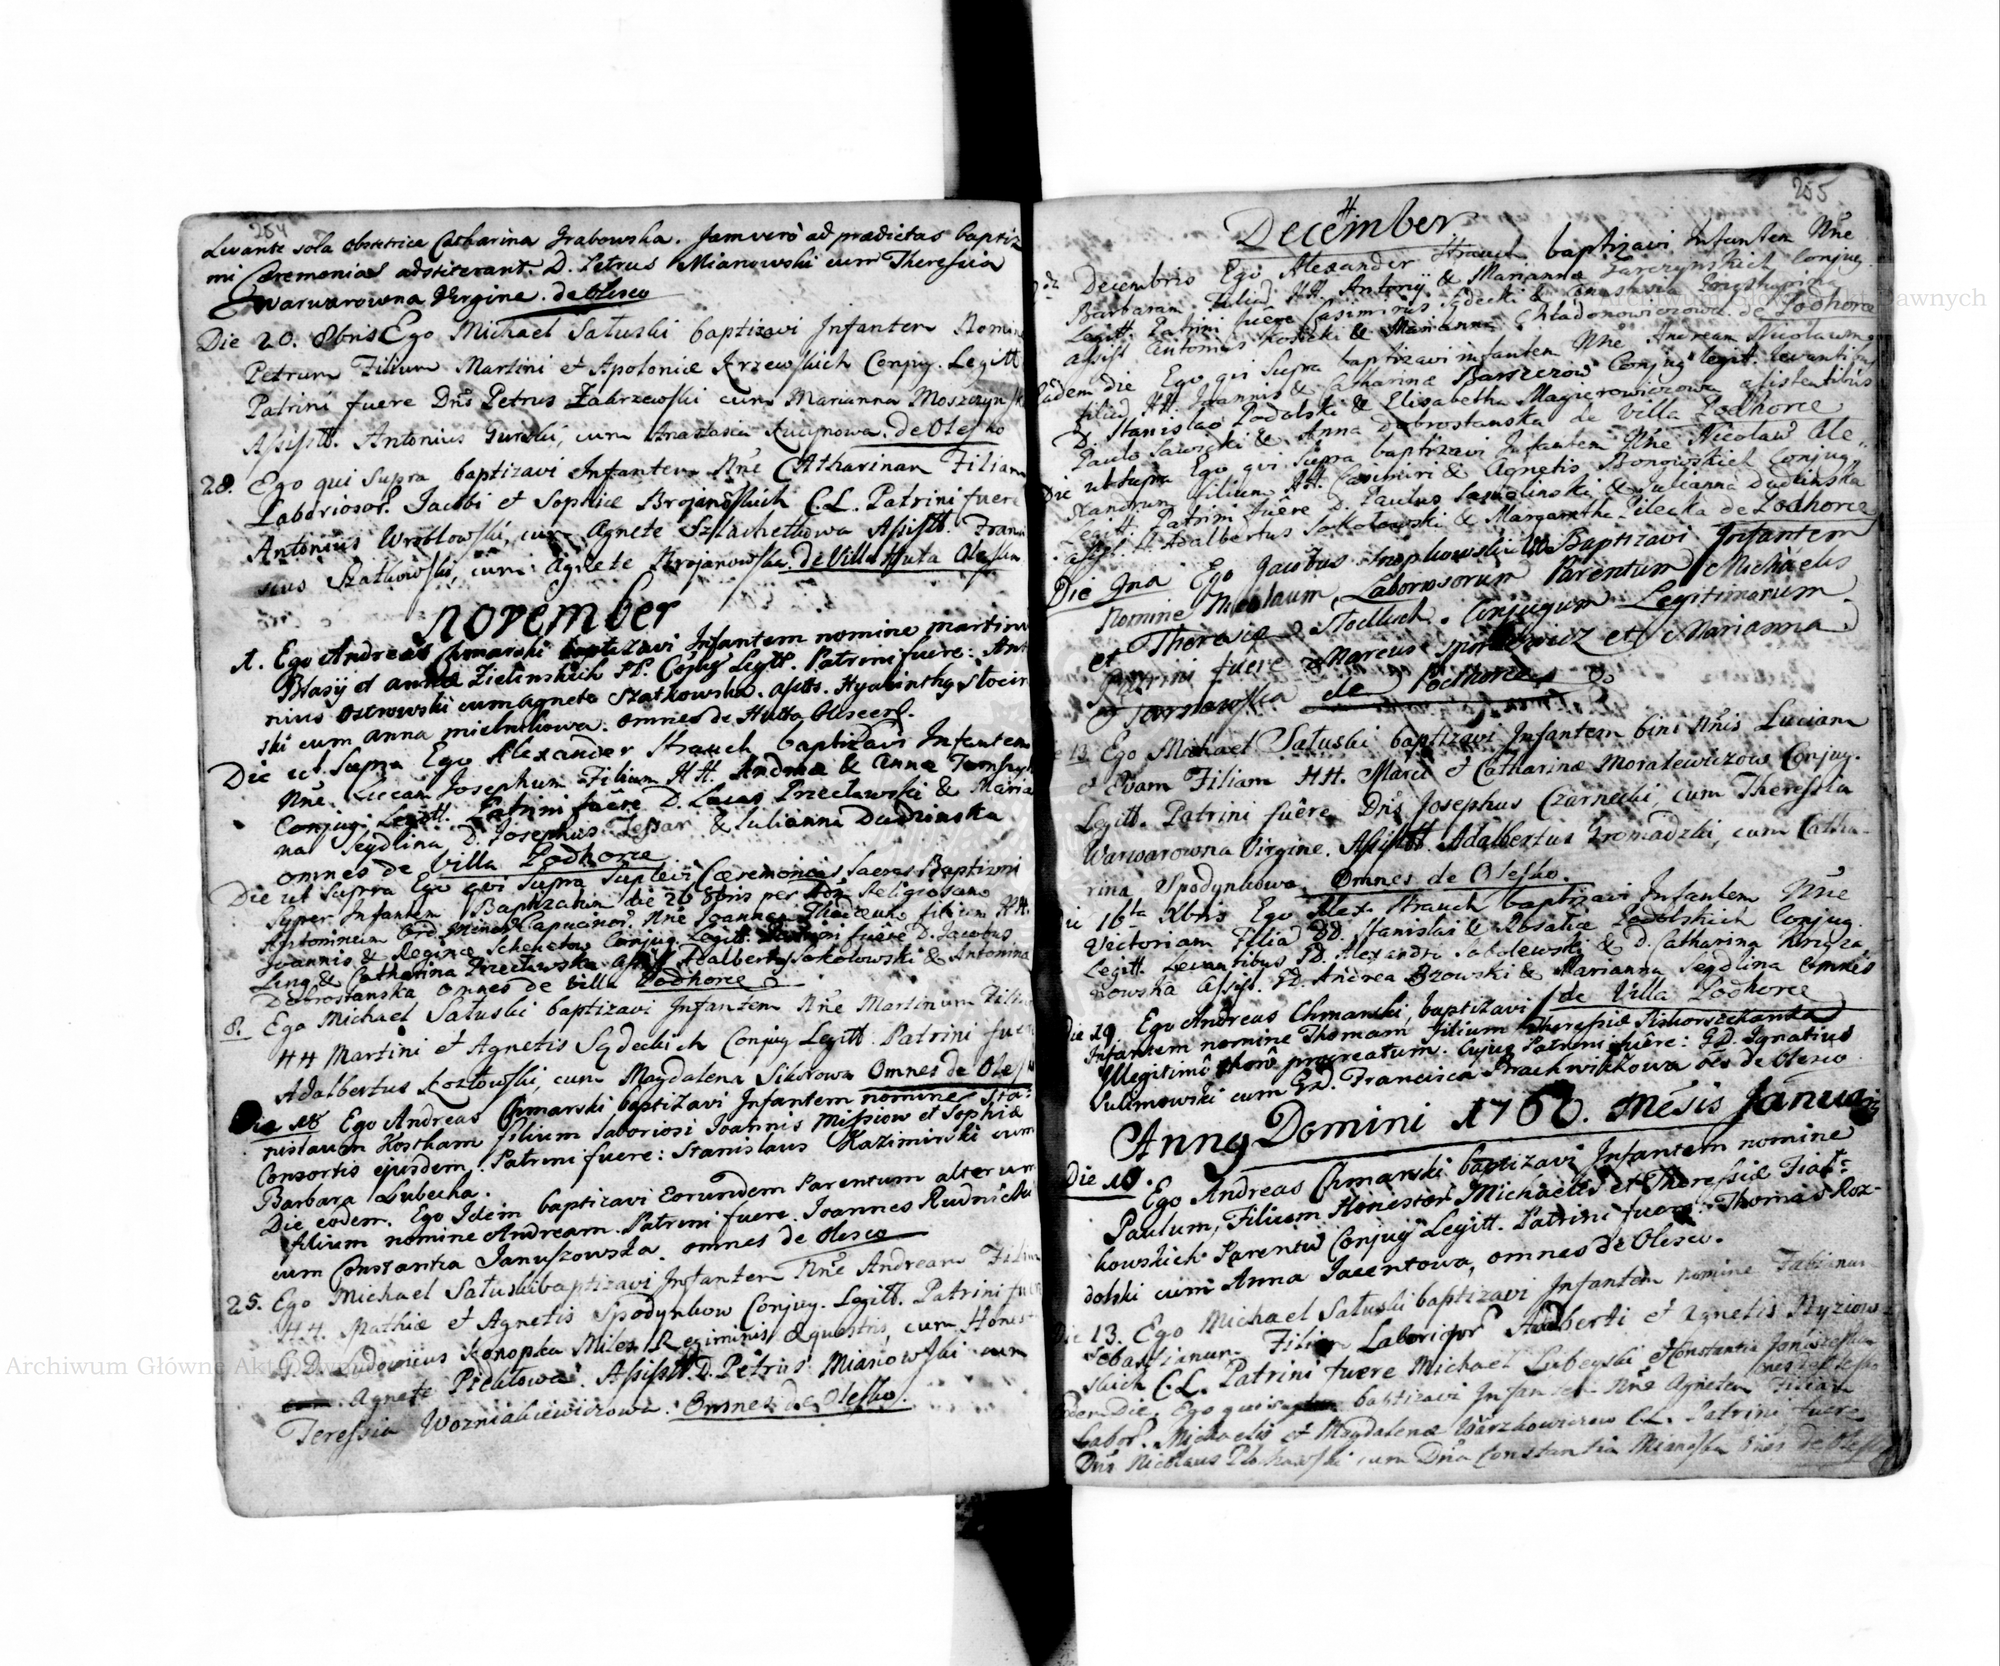 254
Levante sola obstetrice Catharina Grabowska. Jam verò ad prædictas baptiz
mi Ceremonias adstiterant. D. Petrus Mianowski cum Theressia
Warwarowna Virgine. de Olesco
Die 20. 8bris Ego Michael Sałuski baptizavi Infantem Nomine
Petrum Filium Martini et Apoloniæ Krzewskich Conjug. Legitt
Patrini fuere Dn̄s Petrus Zabrzewski cum Marianna Moszczyńsk
Assistt. Antonius Gurski, cum Anastasia Kucynowa. de Olesko
28. Ego qui supra baptizavi Infantem Nn̄e Catharinam Filiam
Laboriosor. Jacobi et Sophiæ Brojanowskich C.L. Patrini fuere
Antonius Wroblowski, cum Agnete Szlachetkowa Assistt. Franci
scus Szatkowski, cum Agnete Strojanowska. de Villa Huta Oleska
November
1. Ego Andreas Chmarski baptizavi Infantem nomine martinu
Błasij et annæ Zielinskich PP. Cojug Legitt. Patrini fuére: Anto
nius Ostrowski cum agnete Szatkowska. assts. Hyacinthg Stocin
ski cum anna mielnikowa. omnes de Hutta Olescens.
Die ut Supra Ego Alexander Strauch baptizavi Infantem
Nn̄e Lucam Josephum Filium HH. Andreæ & Annæ
Conjug: Legitt. Patrini fuêre D. Lucas Przecławski & Maria
na Seydlina, D. Josephus Tessar & Julianna Dudzinska
omnes de Villa Podhorce
Die ut Supra Ego qui Supra Suplevi Cæremonias Sacras Baptismi
Super Infantem Baptizatum die 26 8bris per Religiosum
Antoninum Ord. Minor. Capucinor. Nn̄e Joannem filium HH.
Joannis & Reginæ Conjug Legitt. Patrini fuêre D. Jacobus
Ling & Catharina Przecławska assis Adalbertg Sokołowski & Antonina
Dobrostanska omnes de Villa Podhorce
8. Ego Michael Sałuski baptizavi Infantem Nn̄e Martinum Filiu
HH Martini et Agnetis Sądeckich Conjug Legitt. Patrini fuer
Adalbertus Kozłowski, cum Magdalena Sikorowa Omnes de Olesk
Die 18 Ego Andreas Chmarski baptizavi Infantem nomine Sta:
nislaum Kostkam filium laboriosi Joannis Missiow et Sophiæ
Consortis ejusdem. Patrini fuere: Stanislaus Kazimirski cum
Barbara Lubecka.
Die eodem. Ego Idem baptizavi Eorundem Parentum alterum
filium nomine Andream. Patrini fuere. Joannes Rudnicki
cum Constantia Januszowska. omnes de Olesco
25. Ego Michael Sałuski baptizavi Infantem Nn̄e Andream Filiu
HH. Mathiæ et Agnetis Spodynkow Conjug. Legitt. Patrini fuer
G.D. Ludovicus Konopka Miles Regiminis Equestris, cum Honest
Agnete Assistt. D. Petrus Mianowski cum
Teressia Wozniakiewiczowa. Omnes de Olesko.
255
December
Decembris Ego Alexander Strauch baptizavi Infantem Nn̄e
Barbaram Filiā HH. Antonij & Mariannæ Garczynskich Conjug.
Legitt. Patrini fuêre Casimirus Sądecki & Anastasia
assist Antonius Kosicki & Marianna Chładonowiczowa de Podhorce
Eadem die Ego qui Supra baptizavi infantem Nn̄e Andream Nicolaum
filiū HH. Joannis & Catharinæ Barszczow Conjug legitt. levantibus
D. Stanislao Podolski & Elisabetha Magierowiczowa assistentibus
Paulo Sawicki & Anna Dobrostanska de Villa Podhorce
Die ut supra Ego qui Supra baptizavi Infantem Nn̄e Nicolaū Ale„
xandrum filium HH. Casimiri & Agnetis Bonowskich Conjug
Legitt Patrini fuêre D. Paulus & Julianna Dudzinska
assist. H. Adalbertus Sokołowski & Margaretha Pilecka de Podhorce
Die 9na Ego Jacobus Baptizavi Infantem
Nomine Nicolaum, Laboriosorum Parentum Michaelis
et Theresiæ Conjugum Legitimorum
Patrini fuere Marcus et Marianna
Tarnowska de Podhorce
13. Ego Michael Sałuski baptizavi Infantem bini Nn̄is Luciam
et Evam Filiam HH. Marci et Catharinæ Moralewiczow Conjug.
Legitt. Patrini fuêre Dn̄s Josephus Czarnecki, cum Theressia
Warwarowna Virgine. Assistt. Adalbertus Gromadzki, cum Catha-
rina Spodynkowa. Omnes de Olesko.
16ta Xbris Ego Alex. Strauch baptizavi Infantem Nn̄e
Victoriam Filiā DD. Stanislai & Rosaliæ Podolskich Conjug.
Legitt. Levantibus PD. Alexandri Sobolewski & D. Catharina
nowska assist. GD. Andrea Bzowski & Marianna Seydlina omnes
de Villa Podhorce
Die 19 Ego Andreas Chmarski, baptizavi
Infantem nomine Thomam filium Theressiæ
Illegitimô thorô procreatum. Cujus Patrini fuêre: GD. Ignatius
Sulimowski cum GD. Francisca Brachwitzkowa oēs de Olesco
Anng Domini 1760. Mēsis Januarij
Die 10.
Ego Andreas Chmarski baptizavi Infantem nomine
Paulum, Filium Honestor Michaelis et Theressiæ Fiał-
kowskich Parentū Conjug Legitt. Patrini fuere Thomas Roz-
dolski cum Anna Jacentowa, omnes de Olesco.
13. Ego Michael Sałuski baptizavi Infantem nomine Fabianum
Sebastianum Filium Laborios Adalberti et Agnetis Nyziow-
skich C.L. Patrini fuere Michael Lubeyski et Constantia Januszewska
omnes de Olesko
Eadem Die, Ego qui supra baptizavi Infantem Nn̄e Agnetem Filiam
Labor. Michaelis et Magdalenæ Warzkowiczow C.L. Patrini fuere
Dn̄s Nicolaus cum Dn̄a Constantia Mianowska ōnes de Olesko
Archiwum Główne Akt Dawnych
Archiwum Główne Akt Dawnych